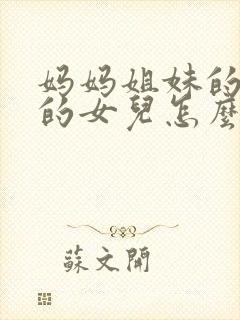 妈妈姐妹的
的女兒怎麼
蘇文開